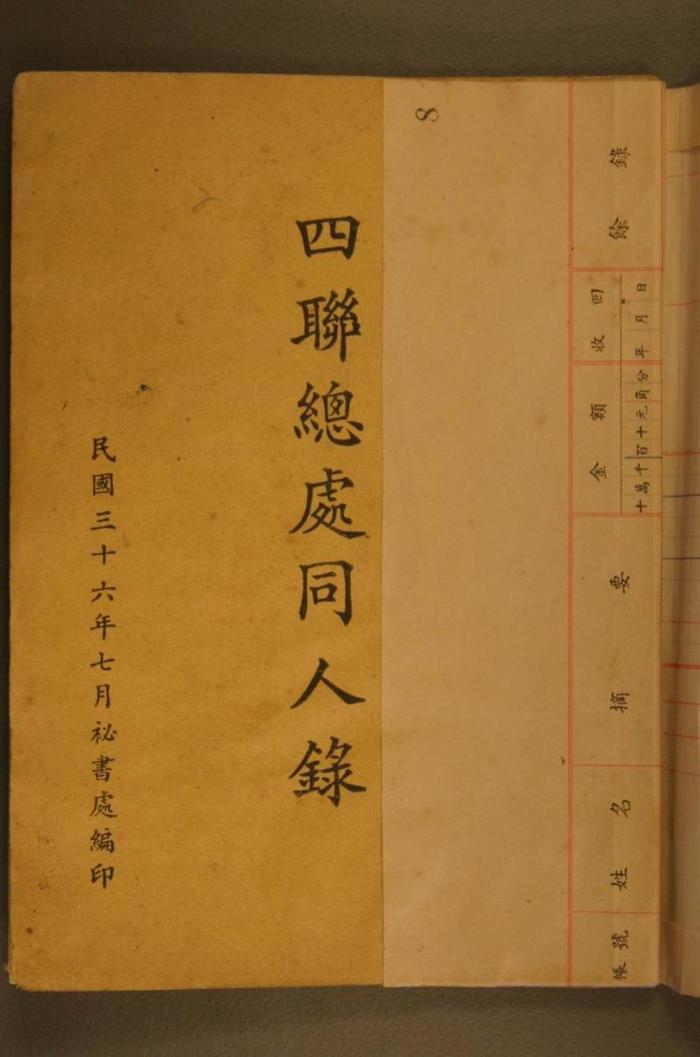 四聯總處同人錄
民國三十六年七月祕書處編印
8
帳號
姓名
摘要
金額
十萬千百十元角分
收回
年月日
餘錄